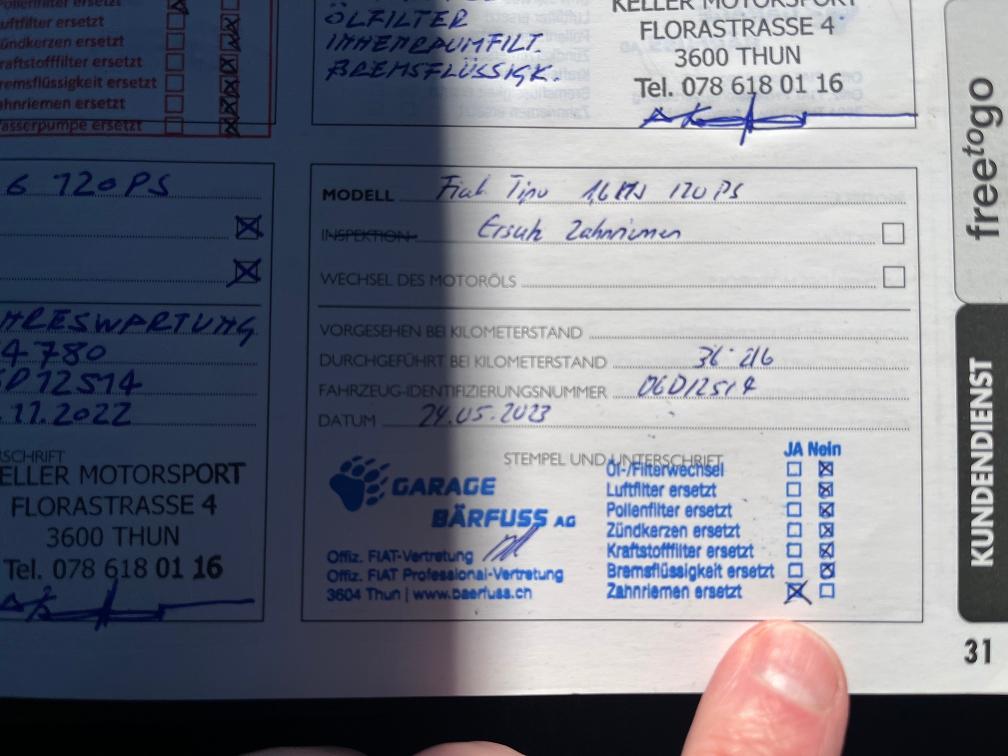 ersetzt
uftfilter ersetzt
ündkerzen ersetzt
raftstofffilter ersetzt
remsflüssigkeit ersetzt
ahnriemen ersetzt
asserpumpe ersetzt
ÖLFILTER
INNENRAUMFILT.
BREMSFLÜSSIGK.
KELLER MOTORSPORT
FLORASTRASSE 4
3600 THUN
Tel. 078 618 01 16
6 120 PS
HRESWARTUNG
4780
12514
.11.2022
SCHRIFT
ELLER MOTORSPORT
FLORASTRASSE 4
3600 THUN
Tel. 078 618 01 16
MODELL Fiat Tipo 1,6 120 PS
INSPEKTION Ersatz Zahnriemen
WECHSEL DES MOTORÖLS
VORGESEHEN BEI KILOMETERSTAND
DURCHGEFÜHRT BEI KILOMETERSTAND 36'216
FAHRZEUG-IDENTIFIZIERUNGSNUMMER 06D12514
DATUM 24.05.2023
STEMPEL UND UNTERSCHRIFT
GARAGE
BÄRFUSS AG
Offiz. FIAT-Vertretung
Offiz. FIAT Professional-Vertretung
3604 Thun | www.baerfuss.ch
JA Nein
Öl-/Filterwechsel
Luftfilter ersetzt
Pollenfilter ersetzt
Zündkerzen ersetzt
Kraftstofffilter ersetzt
Bremsflüssigkeit ersetzt
Zahnriemen ersetzt
freetogo
KUNDENDIENST
31